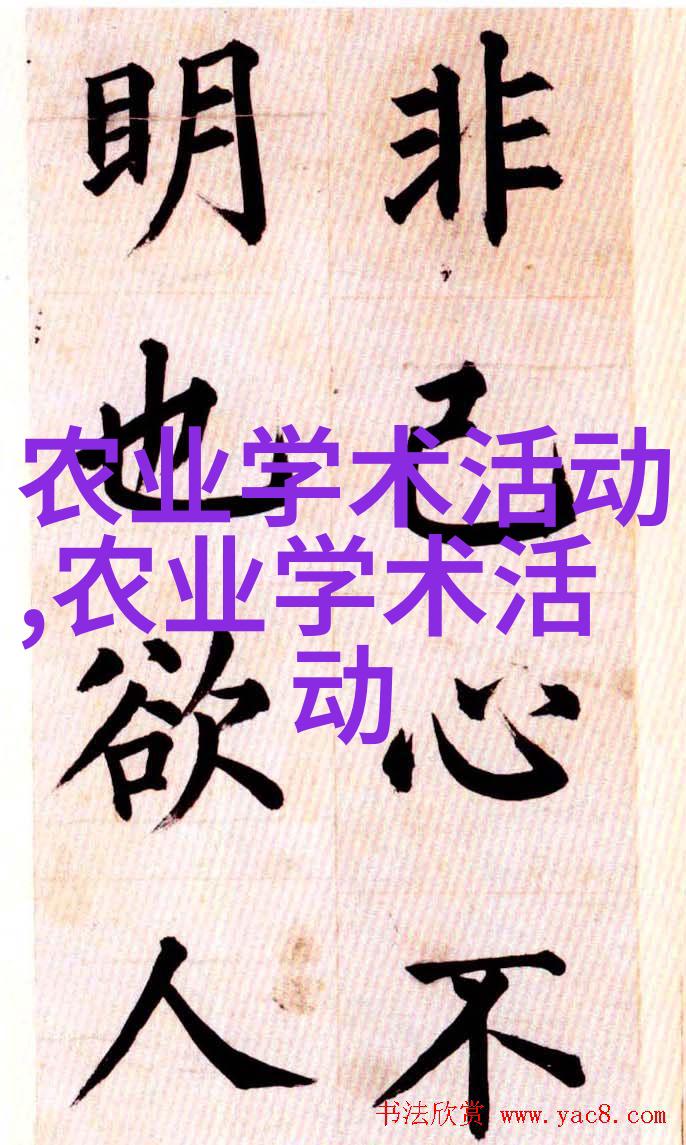 非己心不
明也欲人
农业学术活动
,农业学术活
动
书法欣赏 www.yac8.com